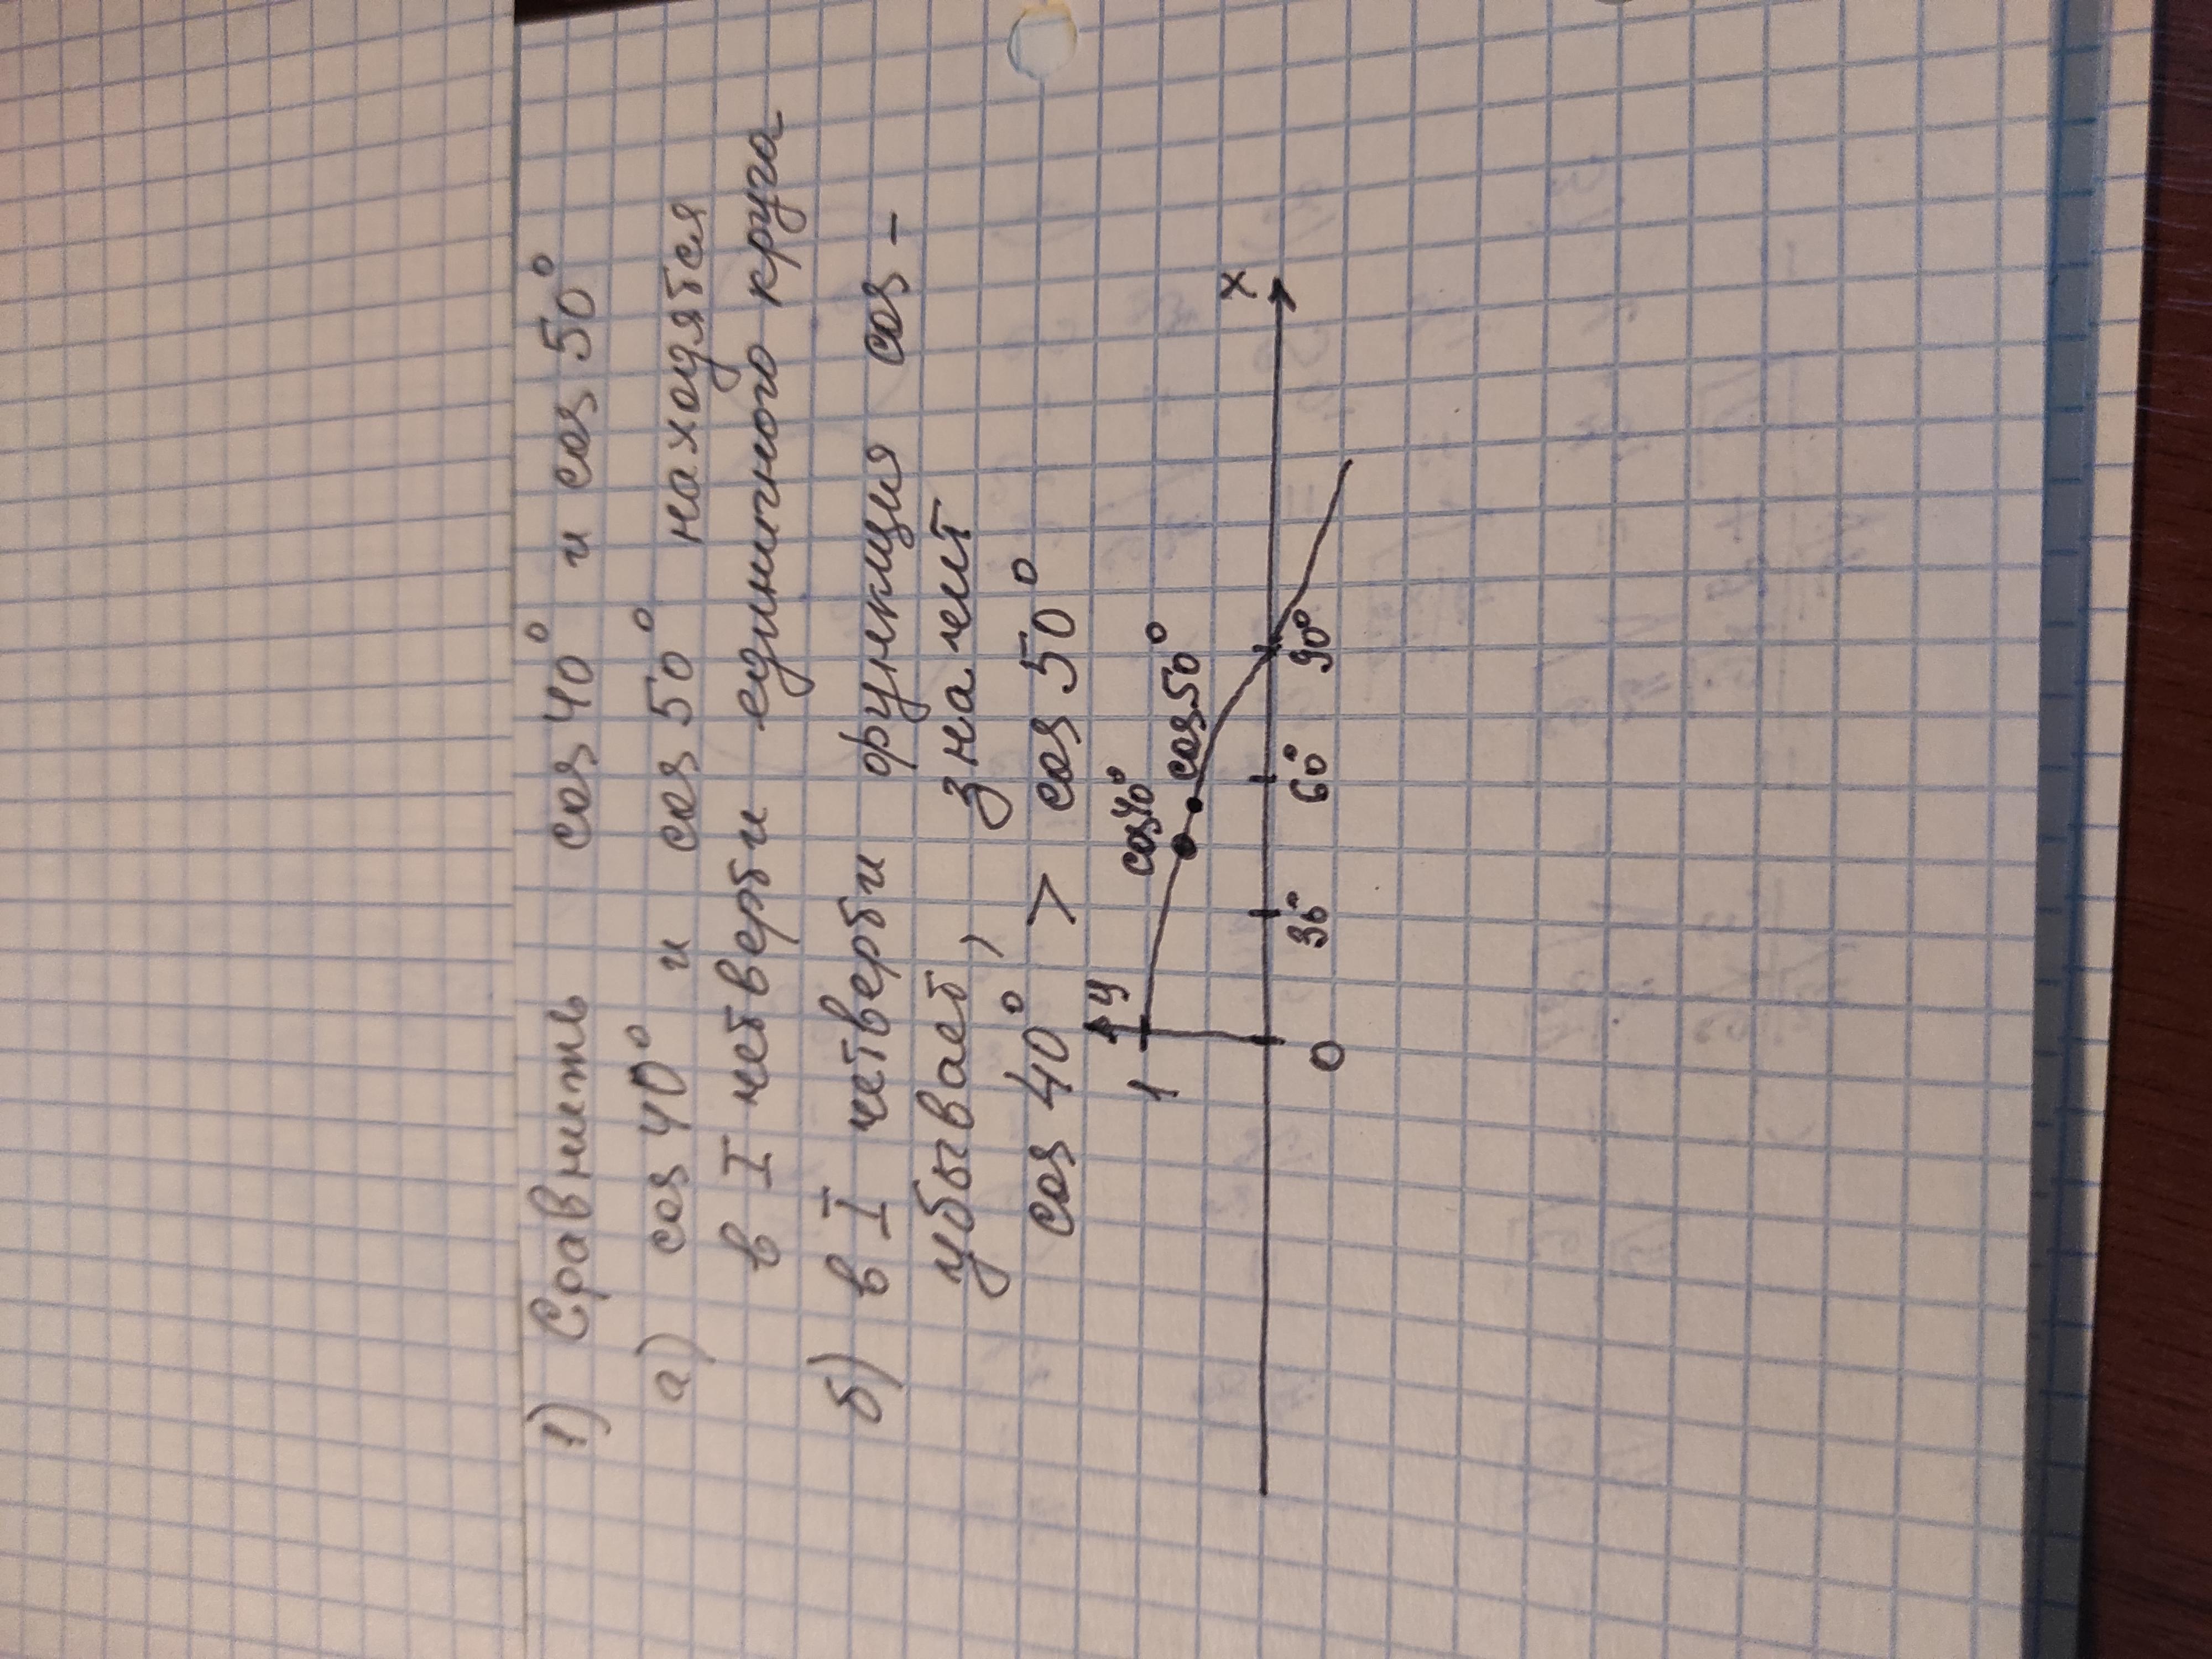 1) Сравнить cos 40° и cos 50°
а) cos 40° и cos 50° находятся
в I четверти единичного круга
б) в I четверти функция cos -
убывает, значит
cos 40° > cos 50°
y
1
cos 40°
cos 50°
x
0
30°
60°
90°